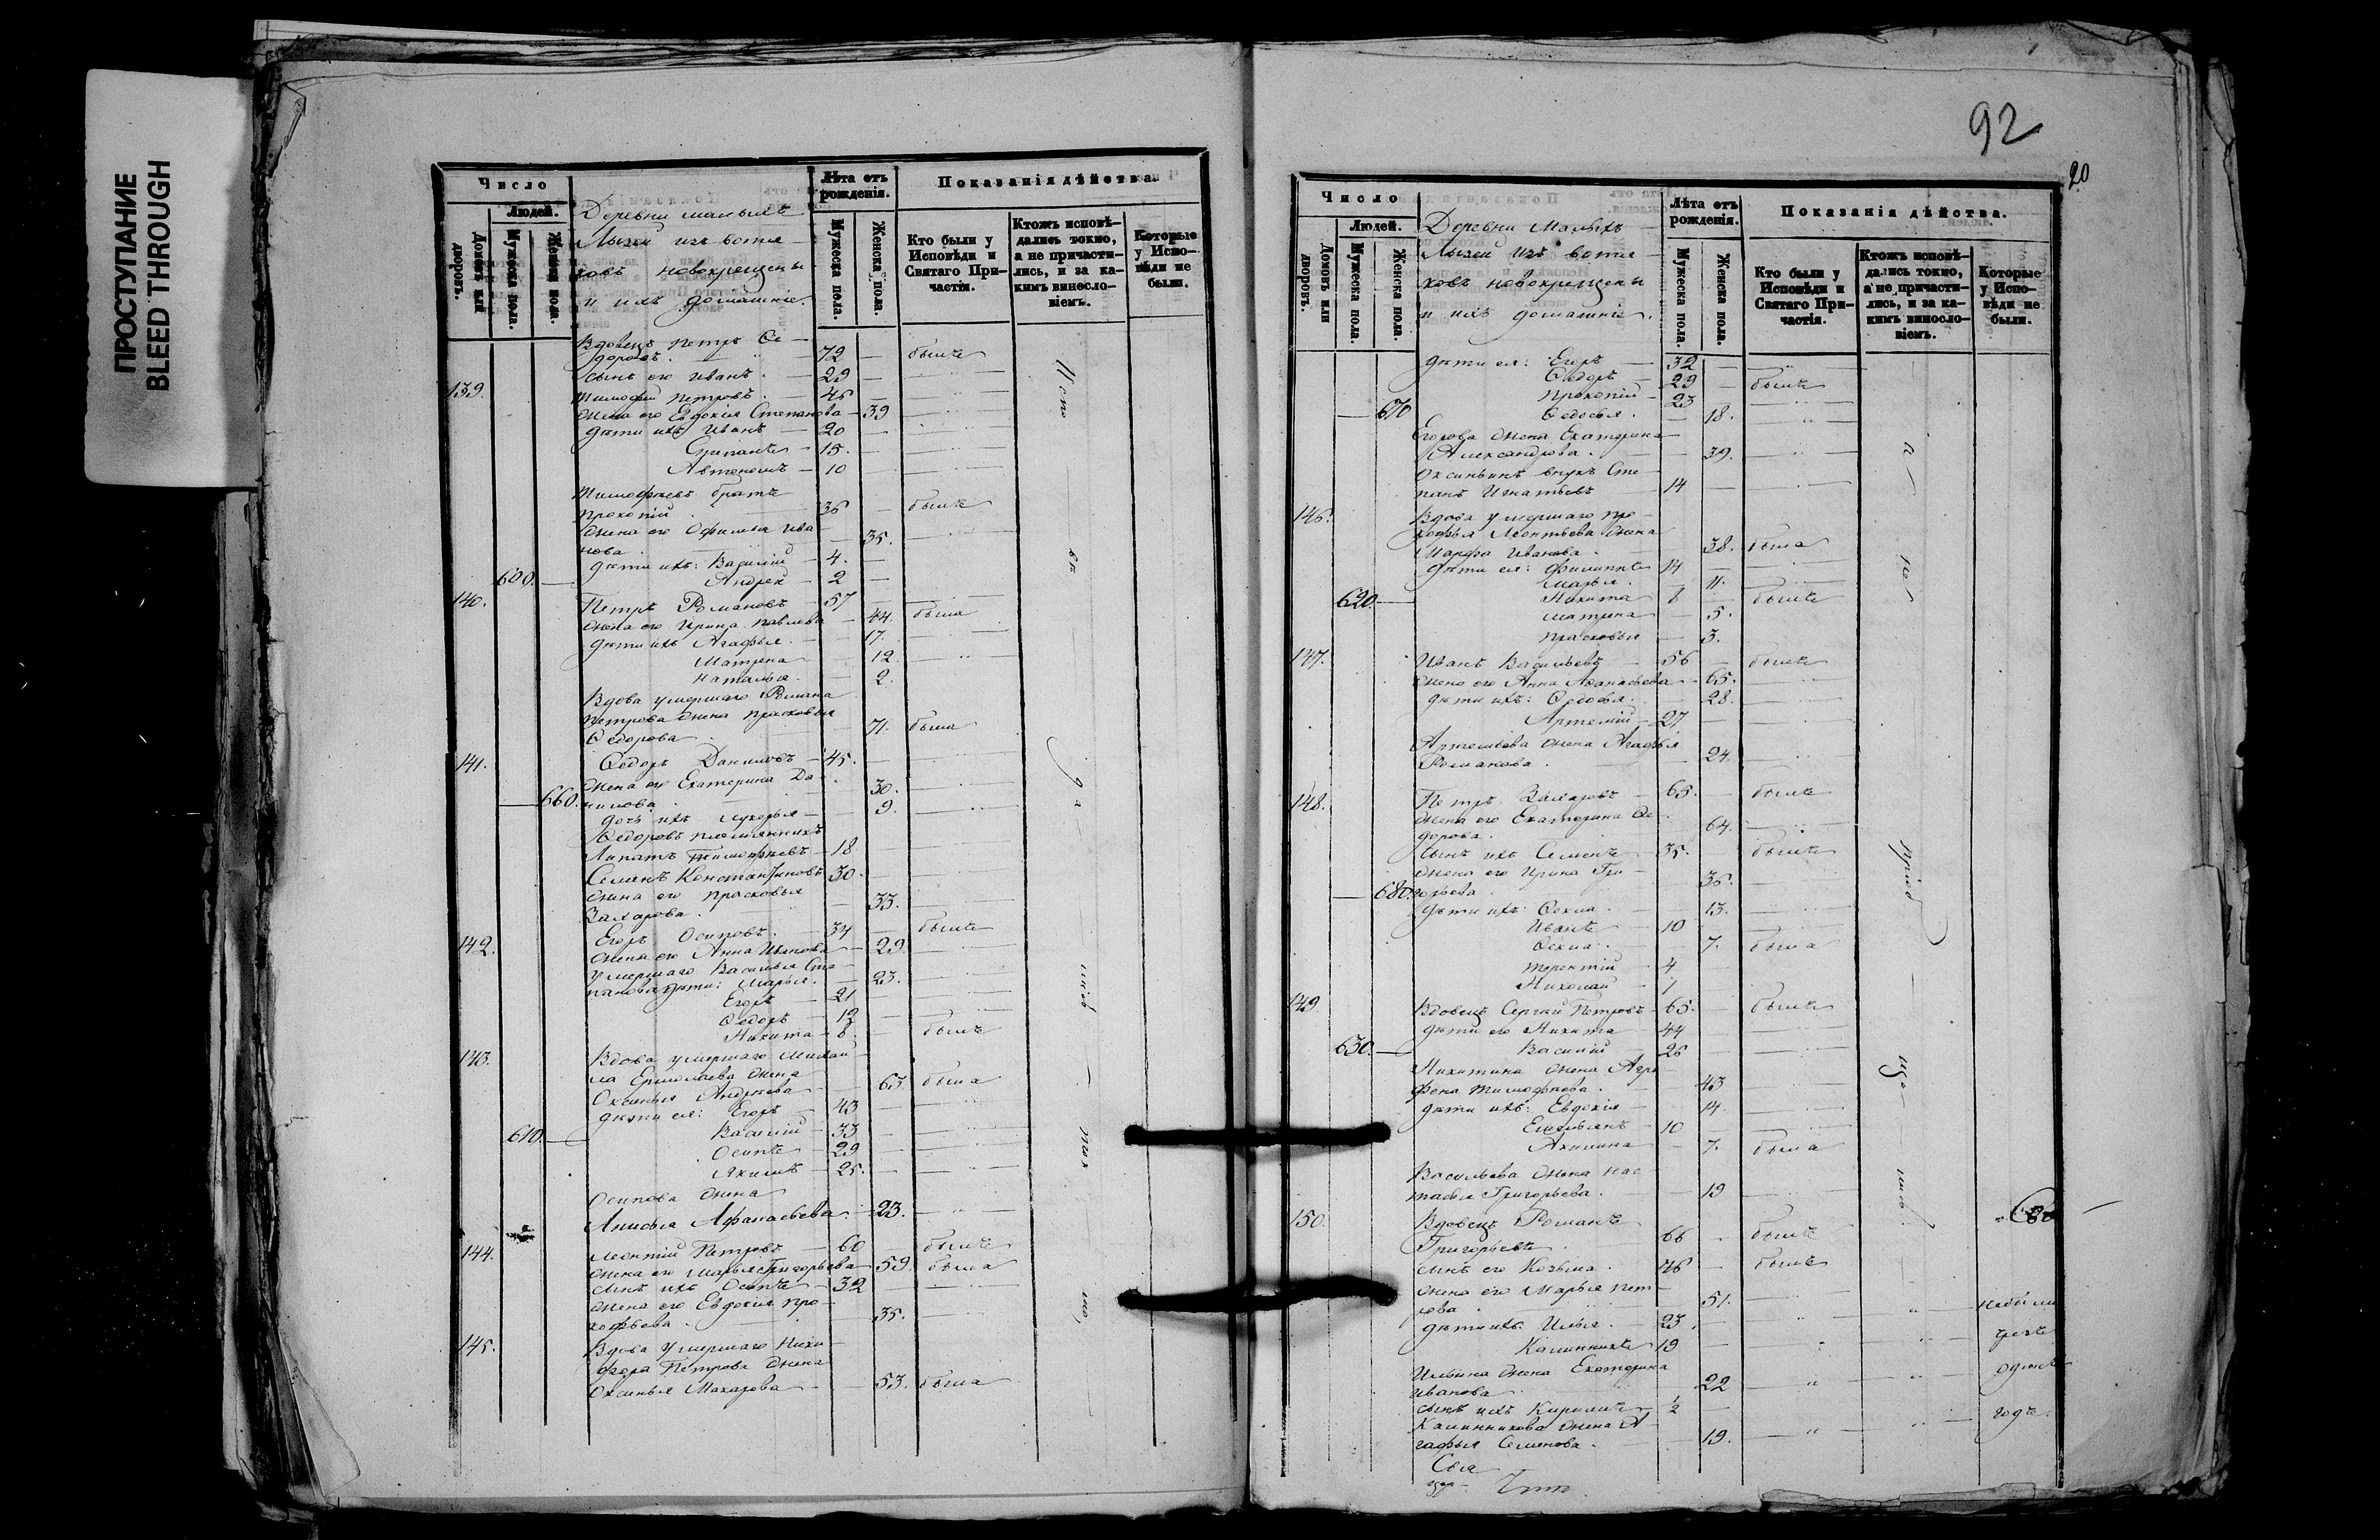 ПРОСТУПАНИЕ
BLEED THROUGH
Число
Людей.
Домовъ или дворовъ.
Мужеска пола.
Женска пола.
Деревни малыхъ
Лызей изъ вотя-
ковъ новокрещены
и ихъ домашніе.
Лѣта отъ рожденія.
Мужеска пола.
Женска пола.
Показанія дѣйства.
Кто были у Исповѣди и Святаго При-частія.
Ктожъ исповѣ-дались токмо, а не причасти-лись, и за ка-кимъ винесло-віемъ.
Которые у Испо-вѣди не были.
Вдовецъ Петръ Ѳе-
доровъ. 72 — былъ
сынъ его Иванъ. 29 —
139. Тимофей Петровъ. 46 —
жена его Евдокія Степанова — 39
дѣти ихъ Иванъ — 20 —
Степанъ — 15. —
Автономъ — 10
Тимофеевъ братъ
Прокопій 36 — былъ
жена его Офимья Ива
нова. — 35.
дѣти ихъ: Василій — 4. —
600. Андрей — 2 —
140. Петръ Романовъ — 57
жена его Ирина Павлова — 44. была
дѣти ихъ Агафья. — 17.
Матрена — 12.
Наталья. — 2.
Вдова умершаго Романа
Петрова жена Прасковья
Ѳедорова 71. была
141. Ѳедоръ Даниловъ — 45. —
жена его Екатерина Да-
660. нилова 30.
дочь ихъ Лукерья — 9.
Ѳедоровъ племянникъ
Липатъ Тимофеевъ — 18
Семенъ Константиновъ 30. —
жена его Прасковья
Захарова. 33.
142. Егоръ Осиповъ. 34 — былъ
жена его Анна Иванова — 29.
умершаго Василья Сте-
панова дѣти: Марья. — 23.
Егоръ — 21
Ѳедоръ — 12
Никита — 8. былъ
143. Вдова умершаго Михай-
ла Ермолаева жена
Оксинья Андреева 63. была
дѣти ея: Егоръ — 43
610. Василій — 33
Осипъ — 29
Якимъ — 25.
Осипова жена
Анисья Афанасьева — 23.
144. Леонтій Петровъ — 60 — былъ
жена его Марья Григорьева — 59. была
сынъ ихъ Осипъ — 32
жена его Евдокія Про-
кофьева. 35.
145. Вдова умершаго Ники-
фора Петрова жена
Оксинья Макарова — 53. была
92
20
Число
Людей.
Домовъ или дворовъ.
Мужеска пола.
Женска пола.
Деревни Малыхъ
Лызей изъ вотя-
ковъ новокрещены
и ихъ домашніе.
Лѣта отъ рожденія.
Мужеска пола.
Женска пола.
Показанія дѣйства.
Кто были у Исповѣди и Святаго При-частія.
Ктожъ исповѣ-дались токмо, а не причасти-лись, и за ка-кимъ винесло-віемъ.
Которые у Испо-вѣди не были.
дѣти ея: Егоръ — 32
Ѳедоръ — 29 — былъ
Прокопій — 23
670 Ѳедосья. — 18.
Егорова жена Екатерина
Александрова. — 39.
Оксиньинъ внукъ Сте-
панъ Игнатьевъ 14
146. Вдова умершаго Про-
кофья Леонтьева жена
Марфа Иванова. 38. была
дѣти ея: Филиппъ 14
Марья. — 11.
620. Никита 8 былъ
Матрена — 5.
Прасковья — 3.
147. Иванъ Васильевъ 56 — былъ
жена его Анна Афанасьева — 65.
дѣти ихъ: Ѳедосья. 28.
Артемій — 27 —
Артемьева жена Агафья
Романова. 24.
148. Петръ Захаровъ — 65. — былъ
жена его Екатерина Ѳе-
дорова. 64.
сынъ ихъ Семенъ — 35. — былъ
жена его Ирина Гри-
680. горьева. 36.
дѣти ихъ: Ѳекла. — 13.
Иванъ — 10
Ѳекла. 7. была
Терентій — 4
Николай — 1
149 Вдовецъ Сергѣй Петровъ — 65. — былъ
дѣти его Никита 44
630. Василій — 26
Никитина жена Агра-
фена Тимофеева. 43
дѣти ихъ: Евдокія — 14.
Емельянъ — 10
Акилина — 7. была
Васильева жена Нас-
тасья Григорьева. — 19
150. Вдовецъ Романъ
Григорьевъ 66 — былъ
сынъ его Козьма. 46 — былъ
жена его Марья Пет-
рова 51.
дѣти ихъ: Илья. — 23. небыли
Калинникъ 19 чрезъ
Ильина жена Екатерина одинъ
Иванова 22
сынъ ихъ Кирилъ — ½ годъ
Калинникова жена А-
гафья Семенова. — 19.